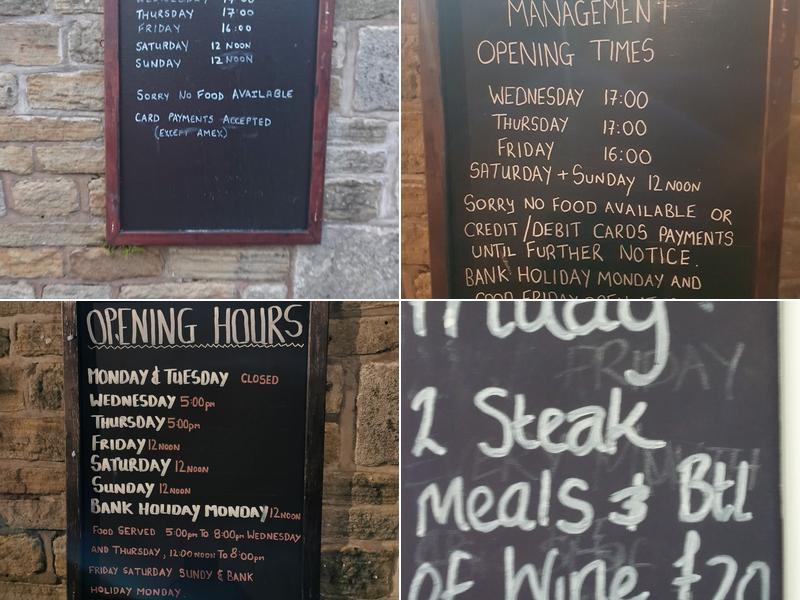 THURSDAY 17:00
FRIDAY 16:00
SATURDAY 12 NOON
SUNDAY 12 NOON
SORRY NO FOOD AVAILABLE
CARD PAYMENTS ACCEPTED
(EXCEPT AMEX)
MANAGEMENT
OPENING TIMES
WEDNESDAY 17:00
THURSDAY 17:00
FRIDAY 16:00
SATURDAY + SUNDAY 12 NOON
SORRY NO FOOD AVAILABLE OR
CREDIT / DEBIT CARDS PAYMENTS
UNTIL FURTHER NOTICE.
BANK HOLIDAY MONDAY AND
GOOD FRIDAY
OPENING HOURS
MONDAY & TUESDAY CLOSED
WEDNESDAY 5:00pm
THURSDAY 5:00pm
FRIDAY 12 NOON
SATURDAY 12 NOON
SUNDAY 12 NOON
BANK HOLIDAY MONDAY 12 NOON
FOOD SERVED 5:00pm TO 8:00pm WEDNESDAY
AND THURSDAY, 12:00 NOON TO 8:00pm
FRIDAY SATURDAY SUNDY & BANK
HOLIDAY MONDAY.
Friday!
FRIDAY
2 Steak
Meals & Btl
of Wine £20